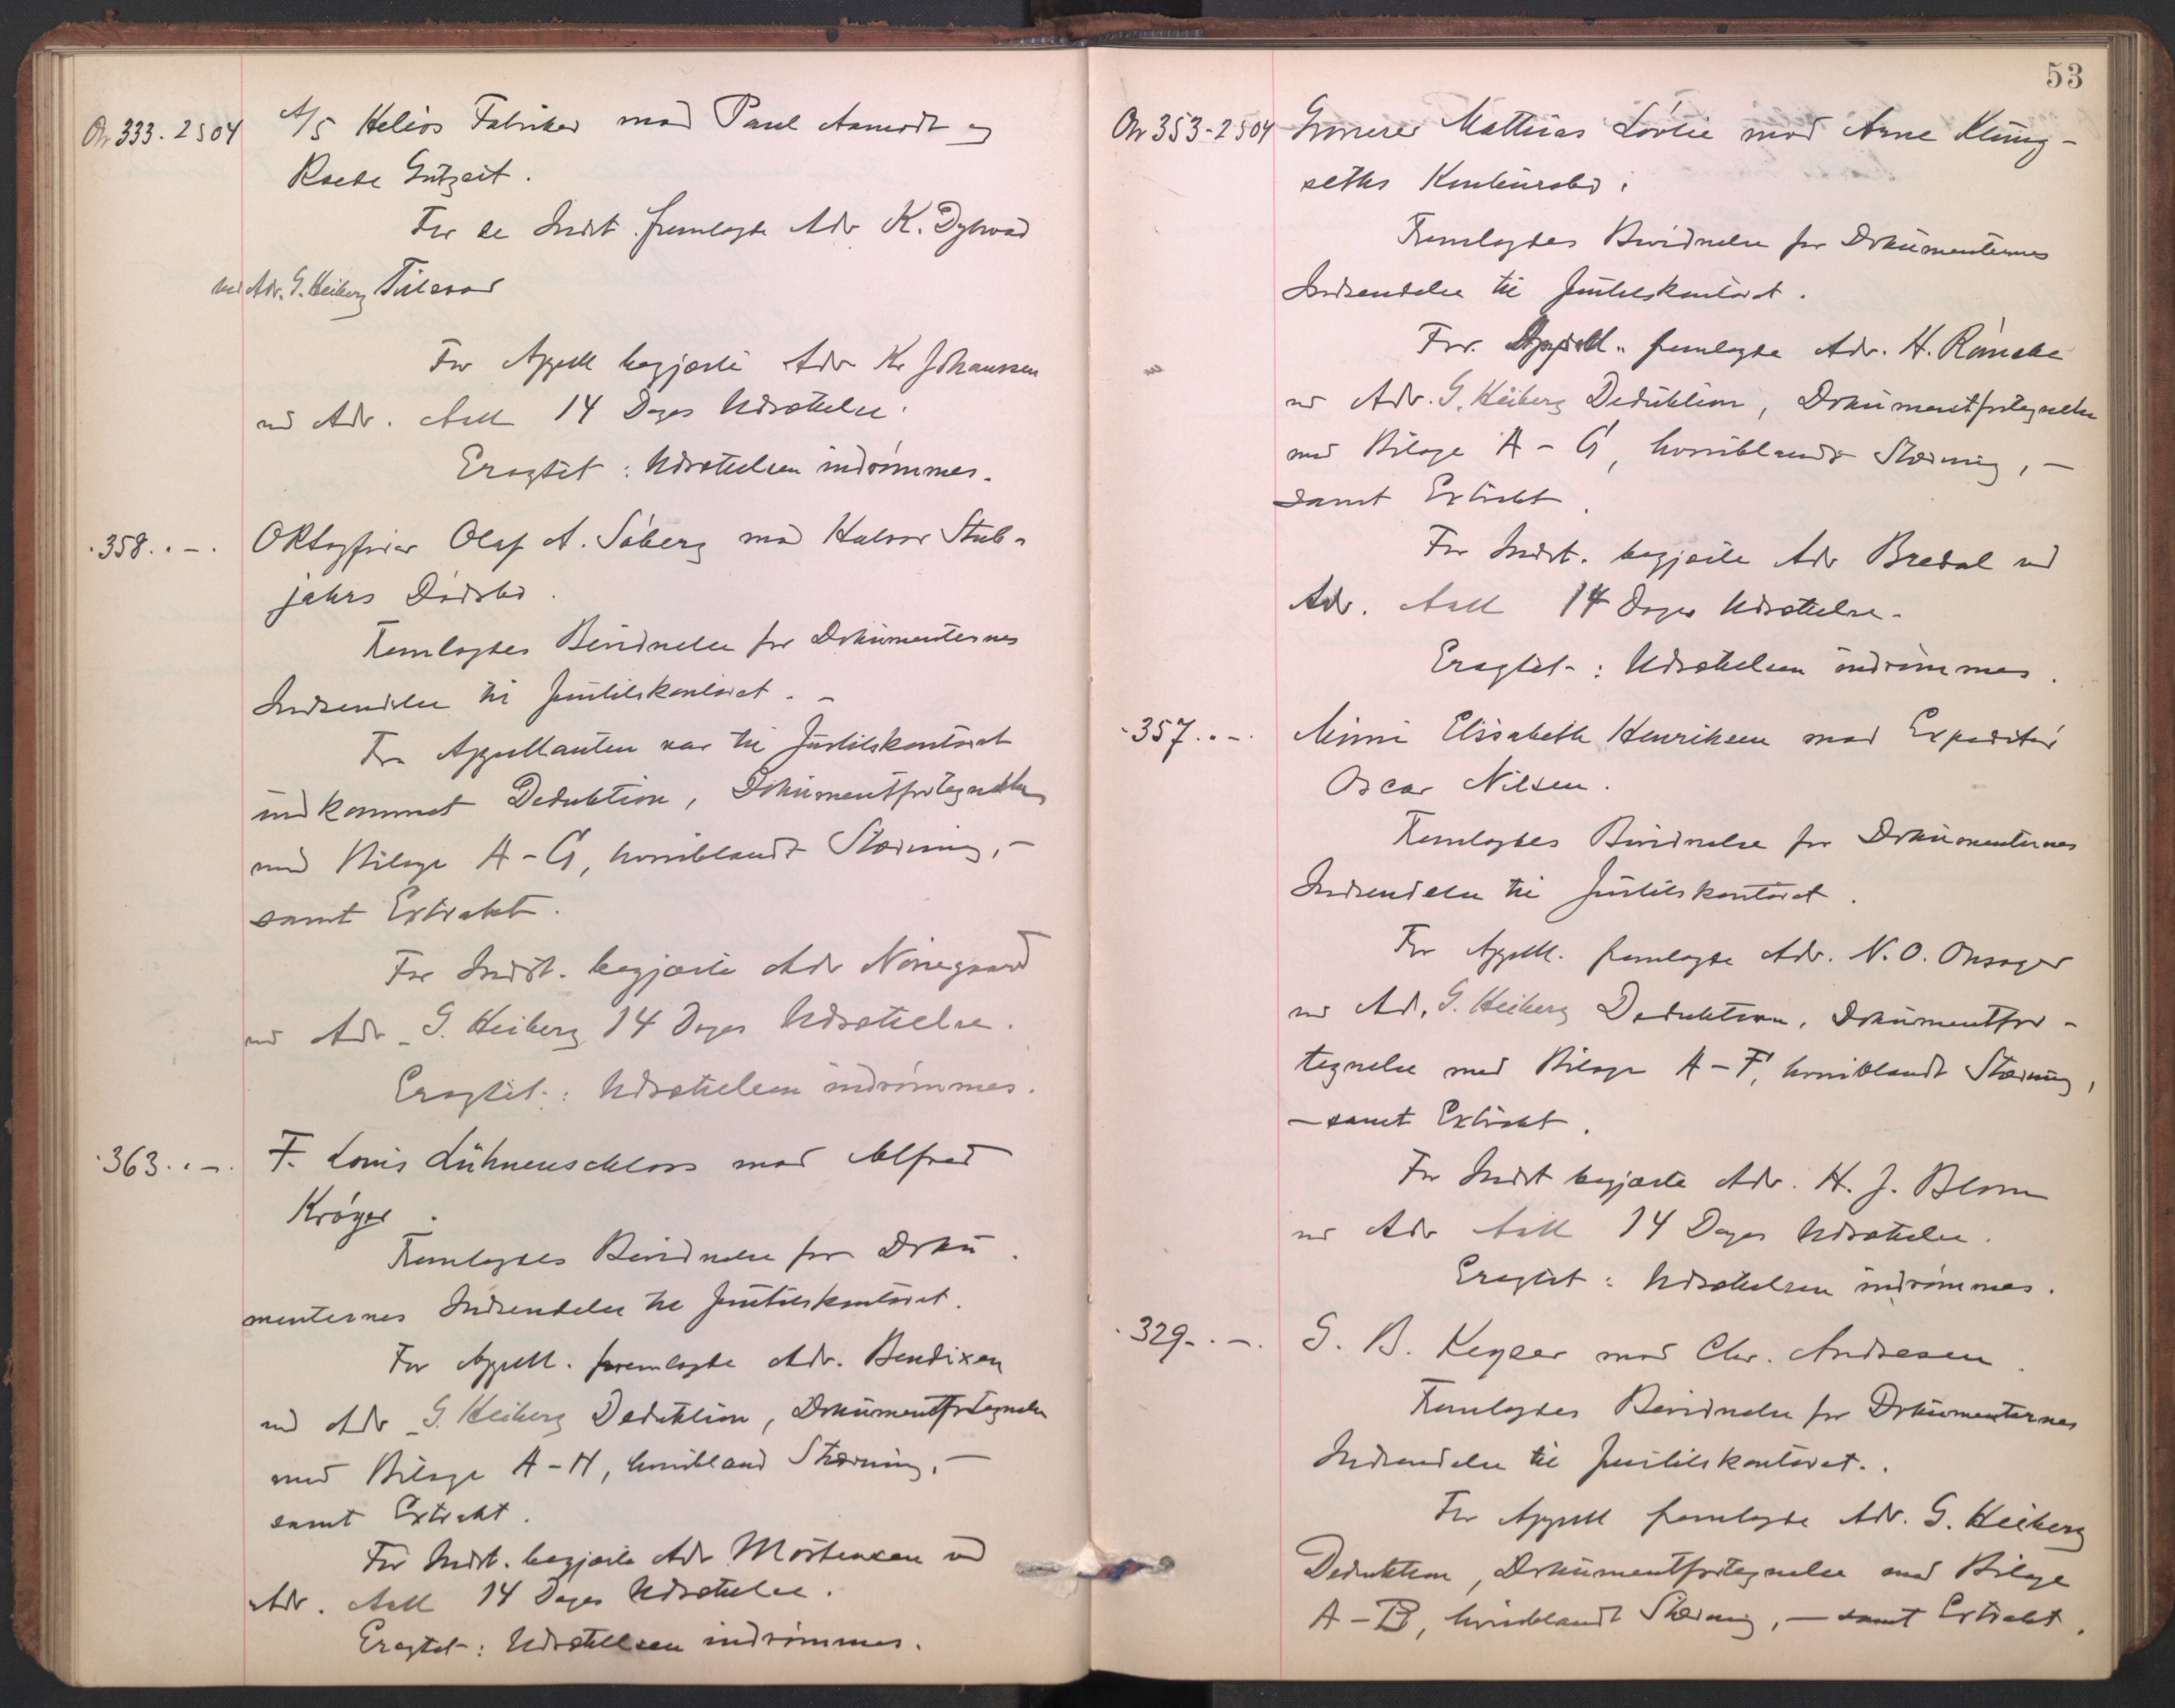 Ov 333. 2504 A/S Helios Fabriker mod Paul Aamodt og
Roede Gutzeit.
For de Indst. fremlagde Adv K. Dybwad
ved Adv. G. Heiberg Tilsvar
For Appell begjærte Adv Kr Johanssen
ved Adv. Aall 14 Dages Udsættelse.
Eragtet: Udsættelsen indrømmes.
·358. · — · O.R.Sagfører Olaf A. Søberg mod Halvor Stub-
jahrs Dødsbo.
Fremlagdes Bevidnelse for Dokumenternes
Indsendelse til Justitskontoret. –
Fra Appellanten var til Justitskontoret
indkommet Deduktion, Dokumentfortegnelse
med Bilage A - G, hvoriblandt Stævning, –
samt Extrakt.
For Indst. begjærte Adv Nørregaard
ved Adv G. Heiberg 14 Dages Udsættelse.
Eragtet: Udsættelsen indrømmes.
·363. · — · F. Louis Lühnenschloss mod Alfred
Krøyer.
Fremlagdes Bevidnelse for Doku-
menternes Indsendelse til Justitskontoret.
For Appell. fremlagde Adv. Bendixen
ved Adv G. Heiberg Deduktion, Dokumentfortegnelse
med Bilage A - H, hvoribland Stævning, –
samt Extrakt.
For Indst. begjærte Adv Mortensen ved
Adv. Aall 14 Dages Udsættelse.
Eragtet: Udsættelsen indrømmes.
53
Ov 353-2504 Mattias Lövlie mod Arne Kling-
seths Konkursbo.
Fremlagdes Bevidnelse for Dokumenternes
Indsendelse til Justitskontoret.
For Appell. fremlagde Adv. H.
ved Adv. G. Heiberg Deduktion, Dokumentfortegnelse
med Bilage A - G, hvoriblandt Stævning, –
samt Extrakt.
For Indst. begjærte Adv Bredal ved
Adv. Aall 14 Dages Udsættelse.
Eragtet: Udsættelsen indrømmes.
·357. · — · Minni Elisabeth Henriksen mod Expeditør
Oscar Nilsen.
Fremlagdes Bevidnelse for Dokumenternes
Indsendelse til Justitskontoret.
For Appell. fremlagde Adv. N. O. Onsager
ved Adv. G. Heiberg Deduktion, Dokumentfor-
tegnelse med Bilage A - F, hvoriblandt Stævning,
– samt Extrakt.
For Indst begjærte Adv. H. J. Blom
ved Adv Aall 14 Dages Udsættelse.
Eragtet: Udsættelsen indrømmes.
·329. · — · G. B. Keyser mod Chr. Andresen.
Fremlagdes Bevidnelse for Dokumenternes
Indsendelse til Justitskontoret.
For Appell fremlagde Adv. G. Heiberg
Deduktion, Dokumentfortegnelse med Bilage
A - B, hvoriblandt Stævning, – samt Extrakt.